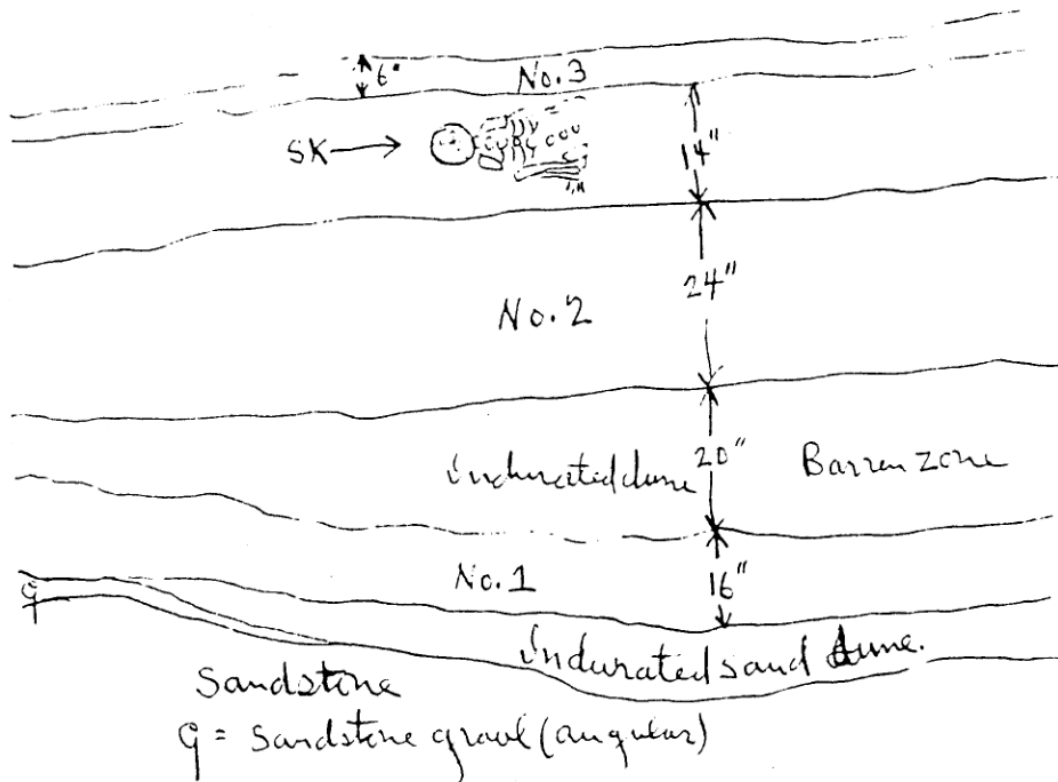 6"
No. 3
SK
14"
24"
No. 2
indurated dune 20" Barren zone
No. 1
16"
g
indurated sand dune.
Sandstone
g = sandstone gravl (angular)